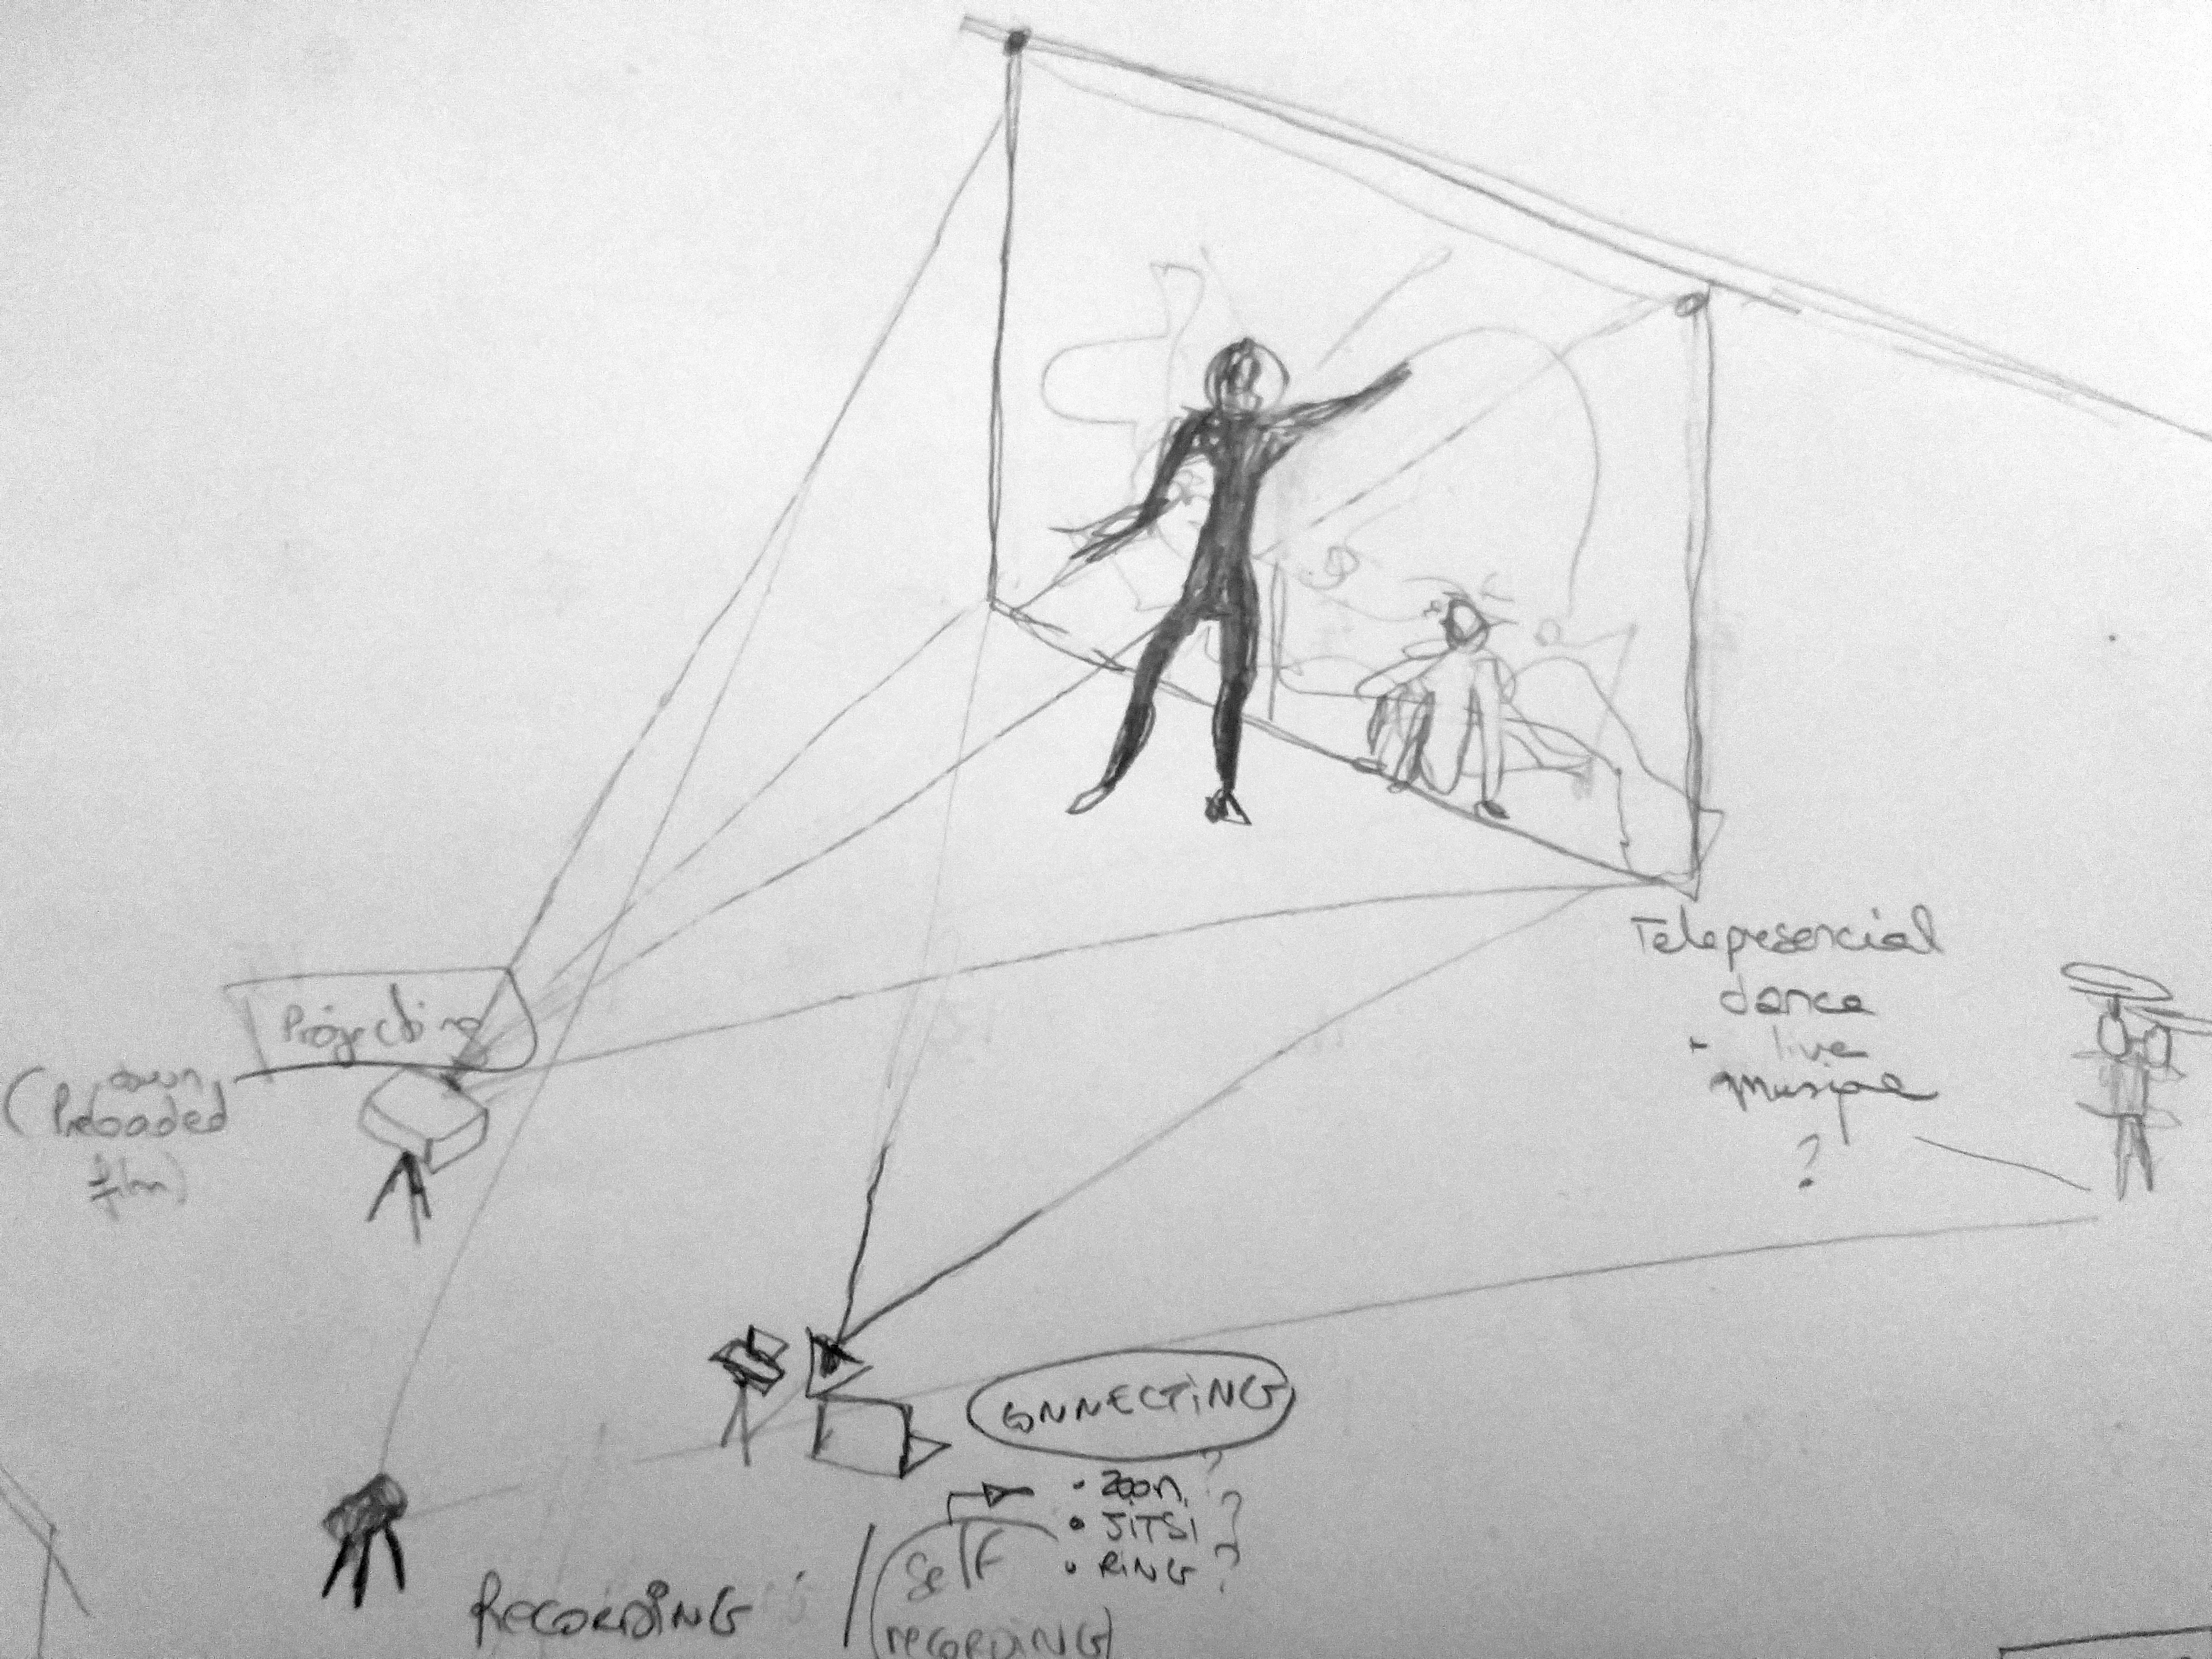 Projecting
(Preloaded
film)
Telepresencial
dance
live
musique
?
CONNECTING
• ZOOM ?
• JITSI ?
• RING ?
RECORDING / (Self
recording)